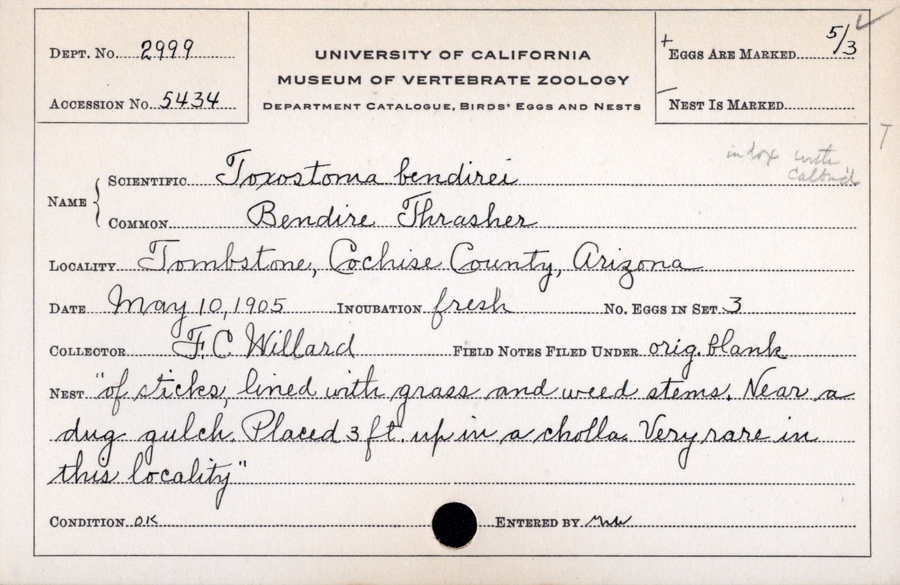 DEPT. No. 2999
ACCESSION No. 5434
UNIVERSITY OF CALIFORNIA
MUSEUM OF VERTEBRATE ZOOLOGY
DEPARTMENT CATALOGUE, BIRDS' EGGS AND NESTS
+ EGGS ARE MARKED 5/3 ✓
– NEST IS MARKED
T
in box with
NAME { SCIENTIFIC Toxostoma bendirei
COMMON Bendire Thrasher
LOCALITY Tombstone, Cochise County, Arizona
DATE May 10, 1905 INCUBATION fresh No. EGGS IN SET 3
COLLECTOR F. C. Willard FIELD NOTES FILED UNDER orig. blank
NEST "of sticks, lined with grass and weed stems. Near a
dug gulch. Placed 3 ft. up in a cholla. Very rare in
this locality"
CONDITION OK ENTERED BY